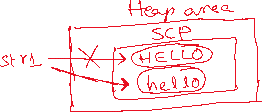 Heap area
SCP
str1
HELLO
hello